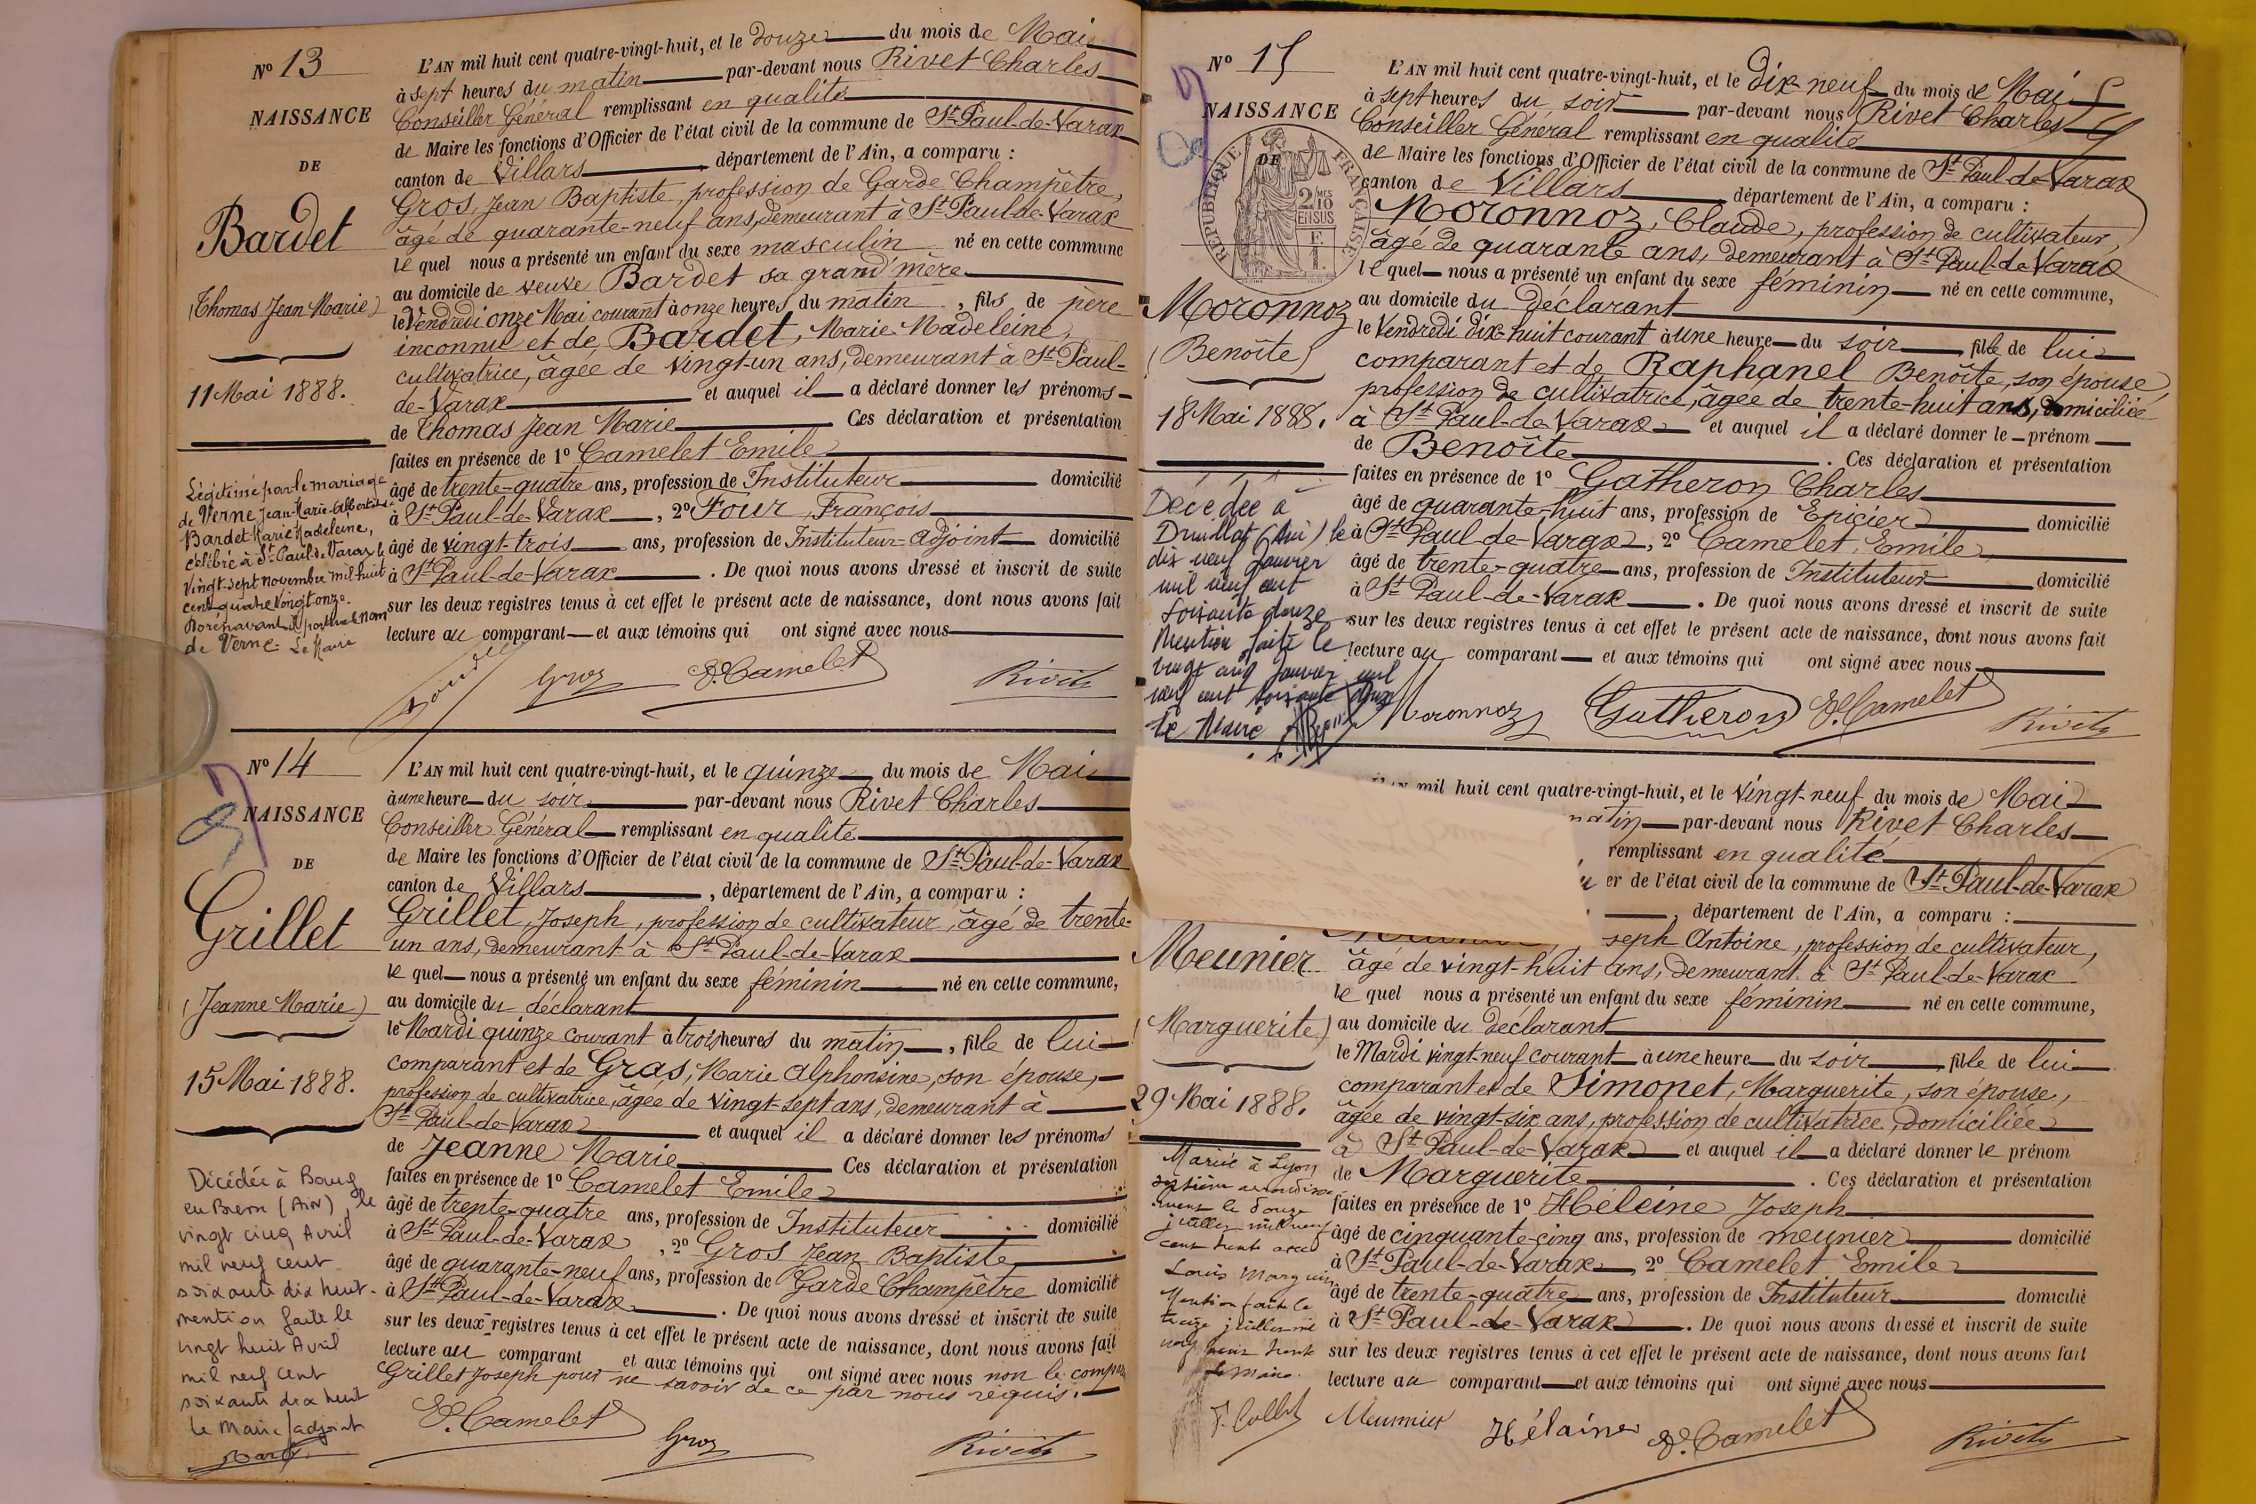 Nº 13
NAISSANCE
DE
Bardet
(Thomas Jean Marie)
11 Mai 1888.
Légitimé par le mariage
de Verne Jean-Marie-Albert &
Bardet Marie Madeleine,
célébré à St Paul de Varax le
vingt-sept novembre mil huit
cent quatre vingt onze.
Dorénavant il portera le nom
de Verne. Le Maire
L'AN mil huit cent quatre-vingt-huit, et le douze du mois de Mai
à sept heures du matin par-devant nous Rivet Charles
Conseiller Général remplissant en qualité
de Maire les fonctions d'Officier de l'état civil de la commune de St Paul-de-Varax
canton de Villars département de l'Ain, a comparu :
Gros, Jean Baptiste, profession de Garde Champêtre,
âgé de quarante-neuf ans, demeurant à St Paul-de-Varax
le quel nous a présenté un enfant du sexe masculin né en cette commune
au domicile de veuve Bardet sa grand'mère
le Vendredi onze Mai courant à onze heures du matin, fils de père
inconnu et de Bardet, Marie Madeleine,
cultivatrice, âgée de vingt-un ans, demeurant à St Paul-
de-Varax et auquel il a déclaré donner les prénoms
de Thomas Jean Marie Ces déclaration et présentation
faites en présence de 1º Camelet Emile
âgé de trente-quatre ans, profession de Instituteur domicilié
à St Paul-de-Varax, 2º Four, François
âgé de vingt-trois ans, profession de Instituteur-adjoint domicilié
à St Paul-de-Varax. De quoi nous avons dressé et inscrit de suite
sur les deux registres tenus à cet effet le présent acte de naissance, dont nous avons fait
lecture au comparant et aux témoins qui ont signé avec nous
Gros E. Camelet Rivet
Nº 14
NAISSANCE
DE
Grillet
(Jeanne Marie)
15 Mai 1888.
Décédée à Bourg
en Bresse (Ain), le
vingt cinq Avril
mil neuf cent
soixante dix huit.
mention faite le
vingt huit Avril
mil neuf cent
soixante dix huit
Le Maire/adjoint
L'AN mil huit cent quatre-vingt-huit, et le quinze du mois de Mai
à une heure du soir par-devant nous Rivet Charles
Conseiller Général remplissant en qualité
de Maire les fonctions d'Officier de l'état civil de la commune de St Paul-de-Varax
canton de Villars, département de l'Ain, a comparu :
Grillet, Joseph, profession de cultivateur, âgé de trente-
un ans, demeurant à St Paul-de-Varax
le quel nous a présenté un enfant du sexe féminin né en cette commune,
au domicile du déclarant
le Mardi quinze courant à trois heures du matin, fille de lui
comparant et de Gras, Marie Alphonsine, son épouse,
profession de cultivatrice, âgée de vingt-sept ans, demeurant à
St Paul-de-Varax et auquel il a déclaré donner les prénoms
de Jeanne Marie Ces déclaration et présentation
faites en présence de 1º Camelet Emile
âgé de trente-quatre ans, profession de Instituteur domicilié
à St Paul-de-Varax, 2º Gros Jean Baptiste
âgé de quarante-neuf ans, profession de Garde Champêtre domicilié
à St Paul-de-Varax. De quoi nous avons dressé et inscrit de suite
sur les deux registres tenus à cet effet le présent acte de naissance, dont nous avons fait
lecture au comparant et aux témoins qui ont signé avec nous non le comp
Grillet Joseph pour ne savoir de ce par nous requis.
E. Camelet Gros Rivet
Nº 15
NAISSANCE
DE
REPUBLIQUE FRANÇAISE
2 MES 2/10 EN SUS
Moronnoz
(Benoîte)
18 Mai 1888.
Décédée à
Druillat (Ain) le
dix neuf janvier
mil neuf cent
soixante douze
Mention faite le
vingt cinq janvier mil
neuf cent soixante douze
Le Maire
L'AN mil huit cent quatre-vingt-huit, et le dix-neuf du mois de Mai
à sept heures du soir par-devant nous Rivet Charles
Conseiller Général remplissant en qualité
de Maire les fonctions d'Officier de l'état civil de la commune de St Paul-de-Varax
canton de Villars département de l'Ain, a comparu :
Moronnoz, Claude, profession de cultivateur,
âgé de quarante ans, demeurant à St Paul-de-Varax
le quel nous a présenté un enfant du sexe féminin né en cette commune,
au domicile du déclarant
le Vendredi dix-huit courant à une heure du soir, fille de lui
comparant et de Raphanel Benoîte, son épouse,
profession de cultivatrice, âgée de trente-huit ans, domiciliée
à St Paul-de-Varax et auquel il a déclaré donner le prénom
de Benoîte. Ces déclaration et présentation
faites en présence de 1º Gatheron Charles
âgé de quarante-huit ans, profession de Epicier domicilié
à St Paul-de-Varax, 2º Camelet, Emile,
âgé de trente-quatre ans, profession de Instituteur domicilié
à St Paul-de-Varax. De quoi nous avons dressé et inscrit de suite
sur les deux registres tenus à cet effet le présent acte de naissance, dont nous avons fait
lecture au comparant et aux témoins qui ont signé avec nous
Moronnoz Gatheron E. Camelet Rivet
Meunier
(Marguerite)
29 Mai 1888.
Mariée à Lyon
septième arrondisse
ment le douze
juillet mil neuf
cent trente avec
Louis Marguin
Mention faite le
treize juillet mil
neuf cent trente
Le Maire.
L'AN mil huit cent quatre-vingt-huit, et le vingt-neuf du mois de Mai
matin par-devant nous Rivet Charles
remplissant en qualité
er de l'état civil de la commune de St Paul-de-Varax
, département de l'Ain, a comparu :
seph Antoine, profession de cultivateur,
âgé de vingt-huit ans, demeurant à St Paul-de-Varax
le quel nous a présenté un enfant du sexe féminin né en cette commune,
au domicile du déclarant
le Mardi vingt-neuf courant à une heure du soir, fille de lui
comparant et de Simonet, Marguerite, son épouse,
âgée de vingt-six ans, profession de cultivatrice, domiciliée
à St Paul-de-Varax et auquel il a déclaré donner le prénom
de Marguerite. Ces déclaration et présentation
faites en présence de 1º Héleine Joseph
âgé de cinquante-cinq ans, profession de meunier domicilié
à St Paul-de-Varax, 2º Camelet Emile
âgé de trente-quatre ans, profession de Instituteur domicilié
à St Paul-de-Varax. De quoi nous avons dressé et inscrit de suite
sur les deux registres tenus à cet effet le présent acte de naissance, dont nous avons fait
lecture au comparant et aux témoins qui ont signé avec nous
Meunier Hélaine E. Camelet Rivet